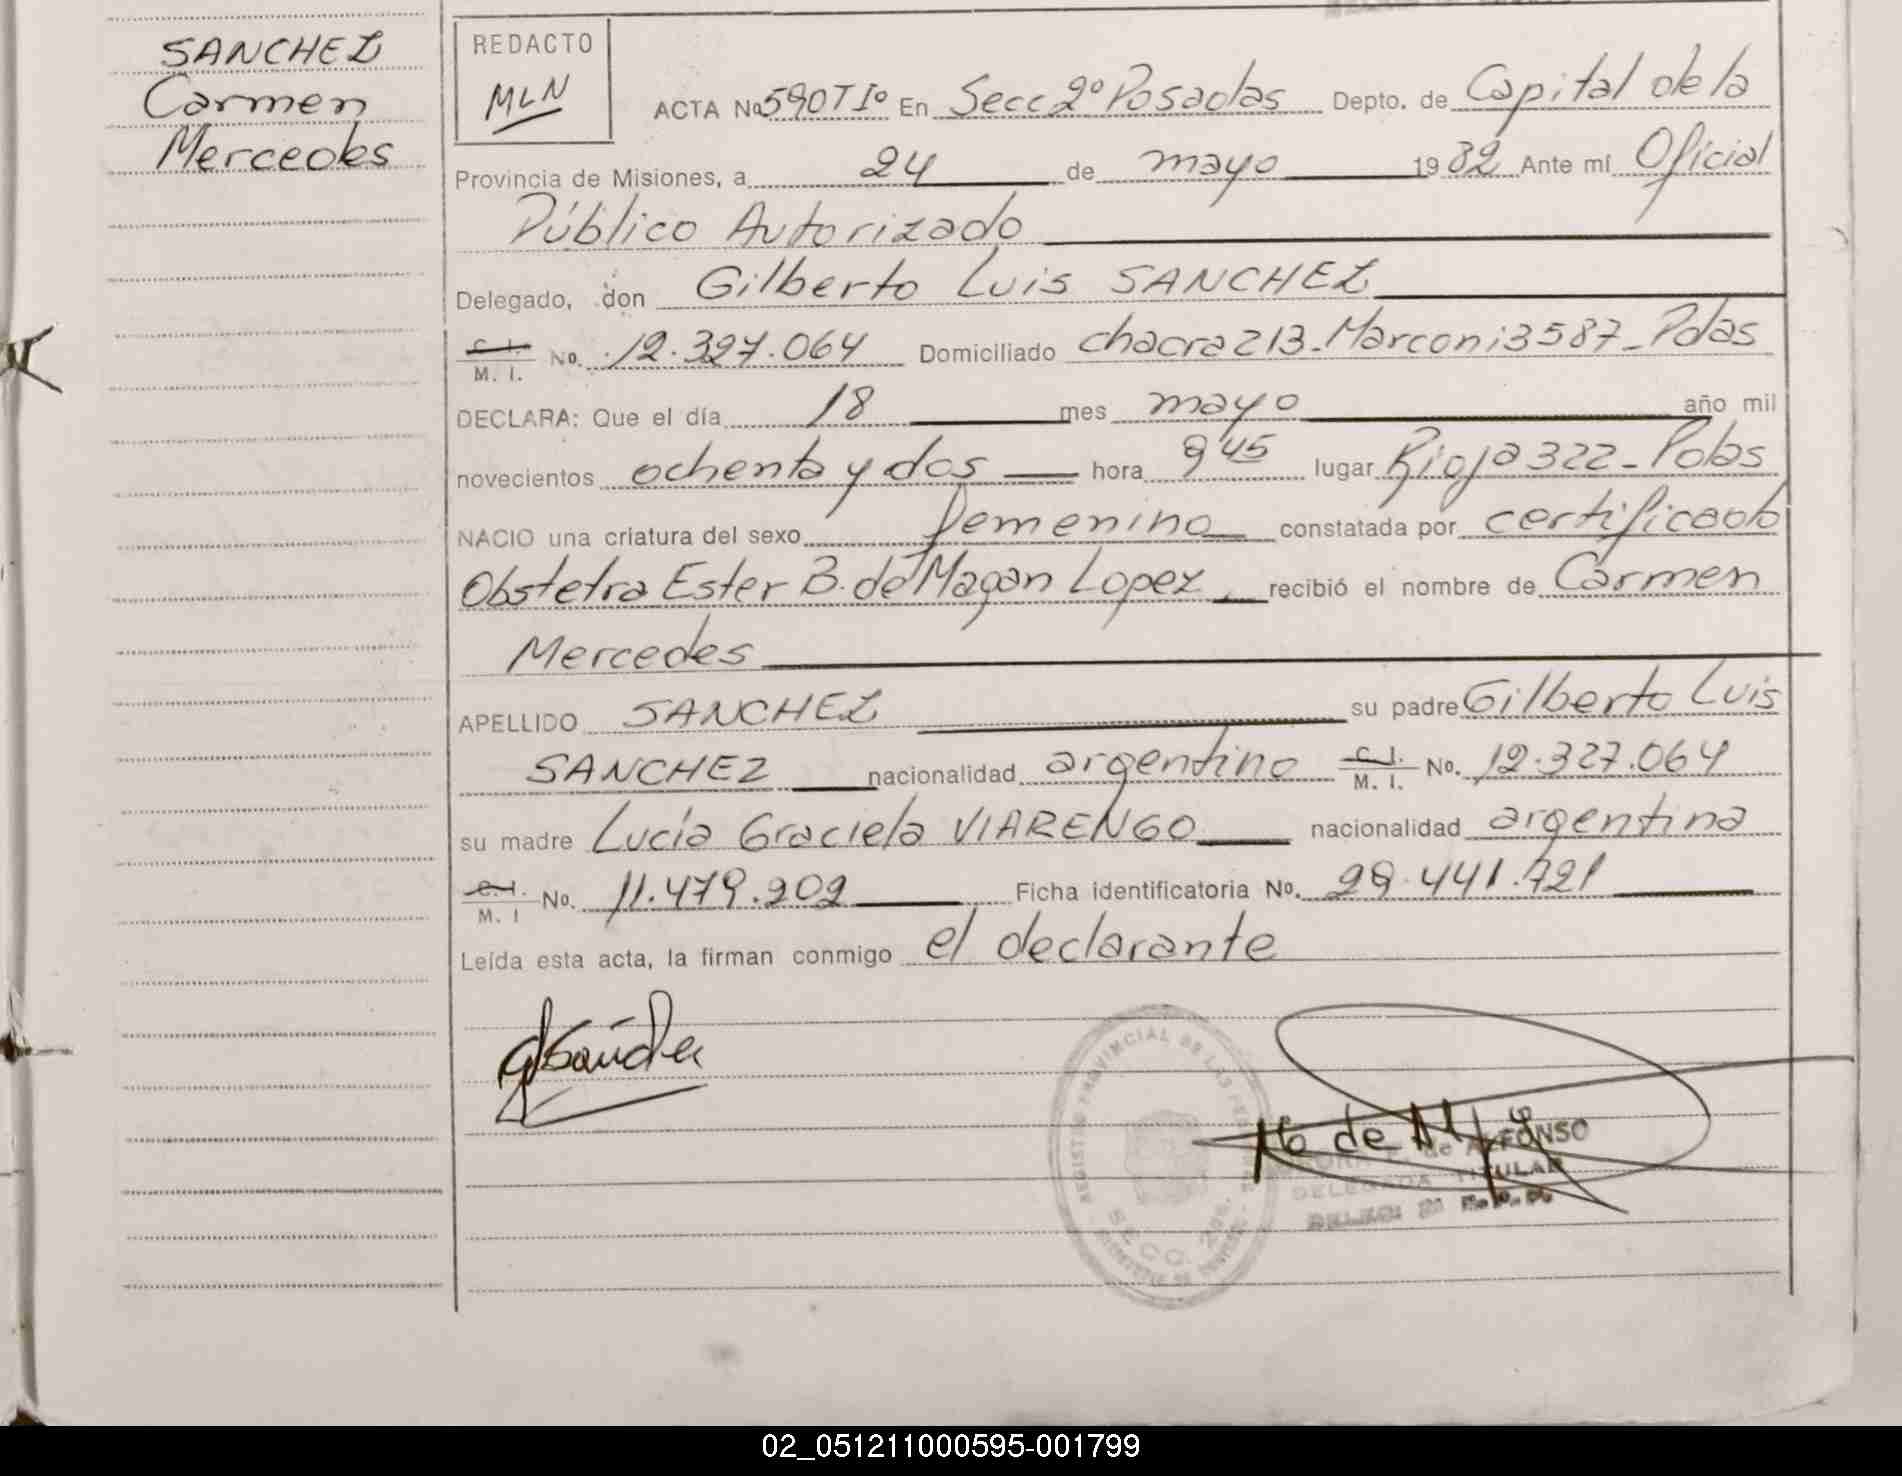 SANCHEZ
Carmen
Mercedes
REDACTO
MLN
ACTA No 590TIº En Secc 2º Posadas Depto. de Capital de la
Provincia de Misiones, a 24 de mayo 1982 Ante mí Oficial
Público Autorizado
Delegado, don Gilberto Luis SANCHEZ
C. I. M. I. No. 12.327.064 Domiciliado chacra 213-Marconi 3587-Pdas
DECLARA: Que el día 18 mes mayo año mil
novecientos ochenta y dos hora 9 45 lugar Rioja 322-Pdas
NACIO una criatura del sexo femenino constatada por certificado
Obstetra Ester B. de Magan Lopez, recibió el nombre de Carmen
Mercedes
APELLIDO SANCHEZ su padre Gilberto Luis
SANCHEZ nacionalidad argentino C. I. M. I. No. 12.327.064
su madre Lucía Graciela VIARENGO nacionalidad argentina
C. I. M. I No. 11.479.202 Ficha identificatoria No. 29.441.721
Leída esta acta, la firman conmigo el declarante
REGISTRO PROVINCIAL DE LAS
SECC. 2da.
de ALFONSO
DELEGADA TITULAR
02_051211000595-001799